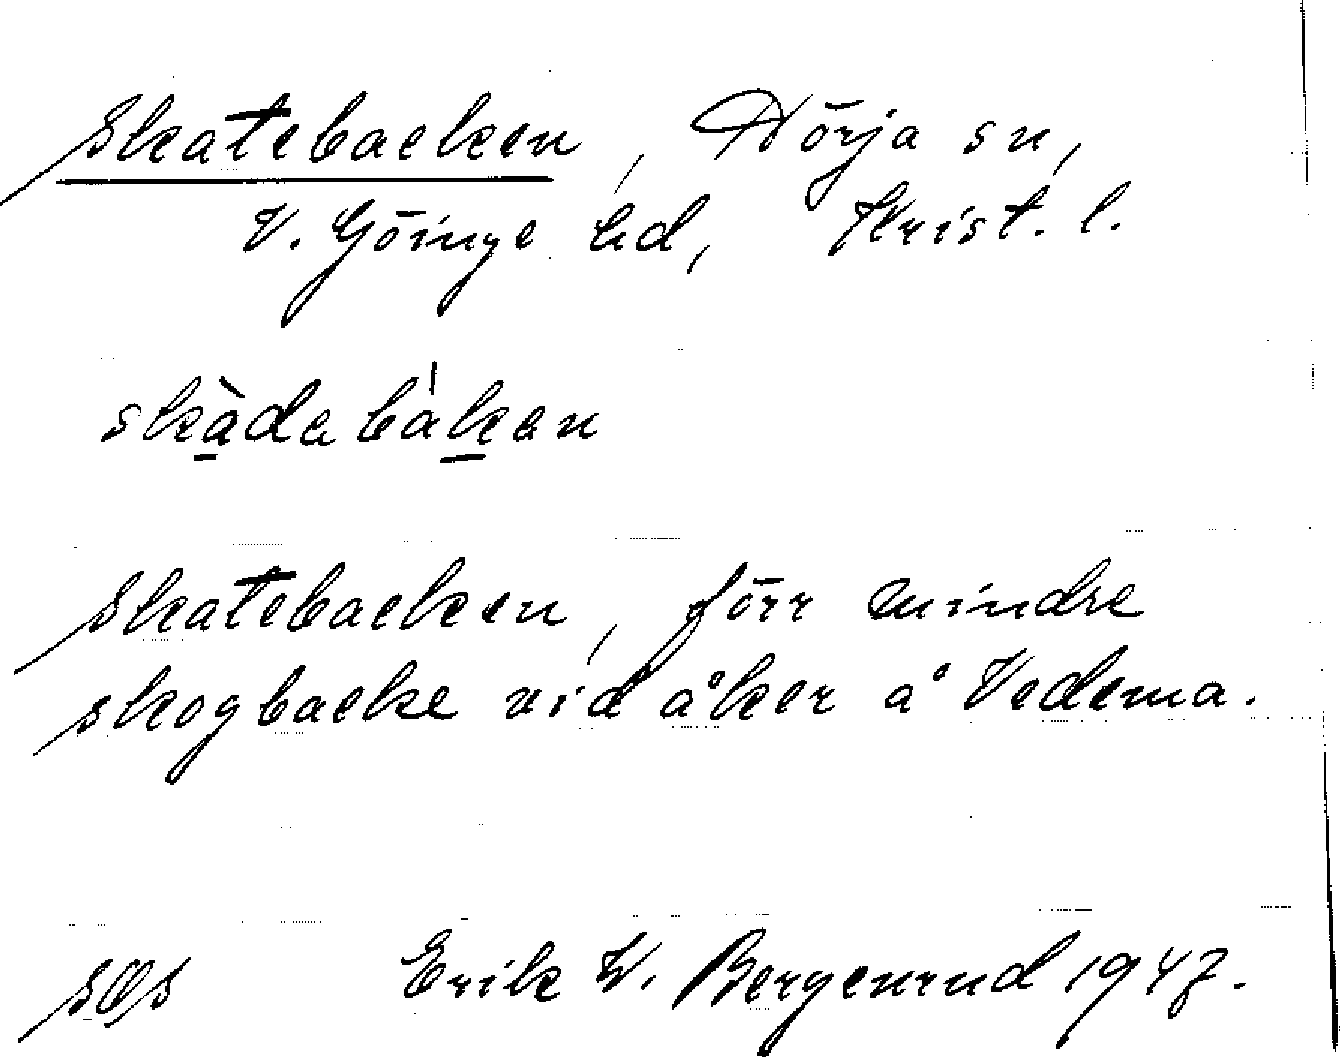 Skatebacken, Nörja sn,
V. Göinge hd, Krist. l.
skàdabákan
Skatebacken, förr mindre
skogbacke vid åker å Vedema.
Erik W. Bergenrud 1947.